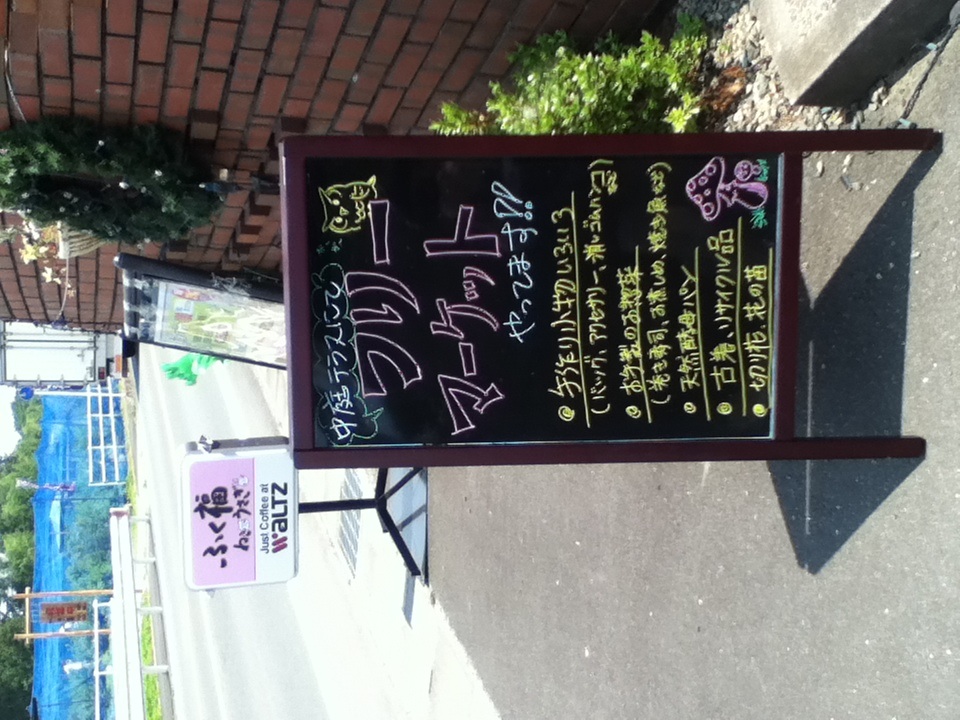 中庭テラスにて
フリー
マーケット
やってます!!
◎手作り小物いろいろ
(バッグ、アクセサリー、消しゴムハンコ)
◎お手製のお惣菜
(巻き寿司、お煮しめ、焼き豚など)
◎天然酵母パン
◎古着、リサイクル品
◎切り花、花の苗
ふく福
ねことうさぎ
Just Coffee at
WaLTZ